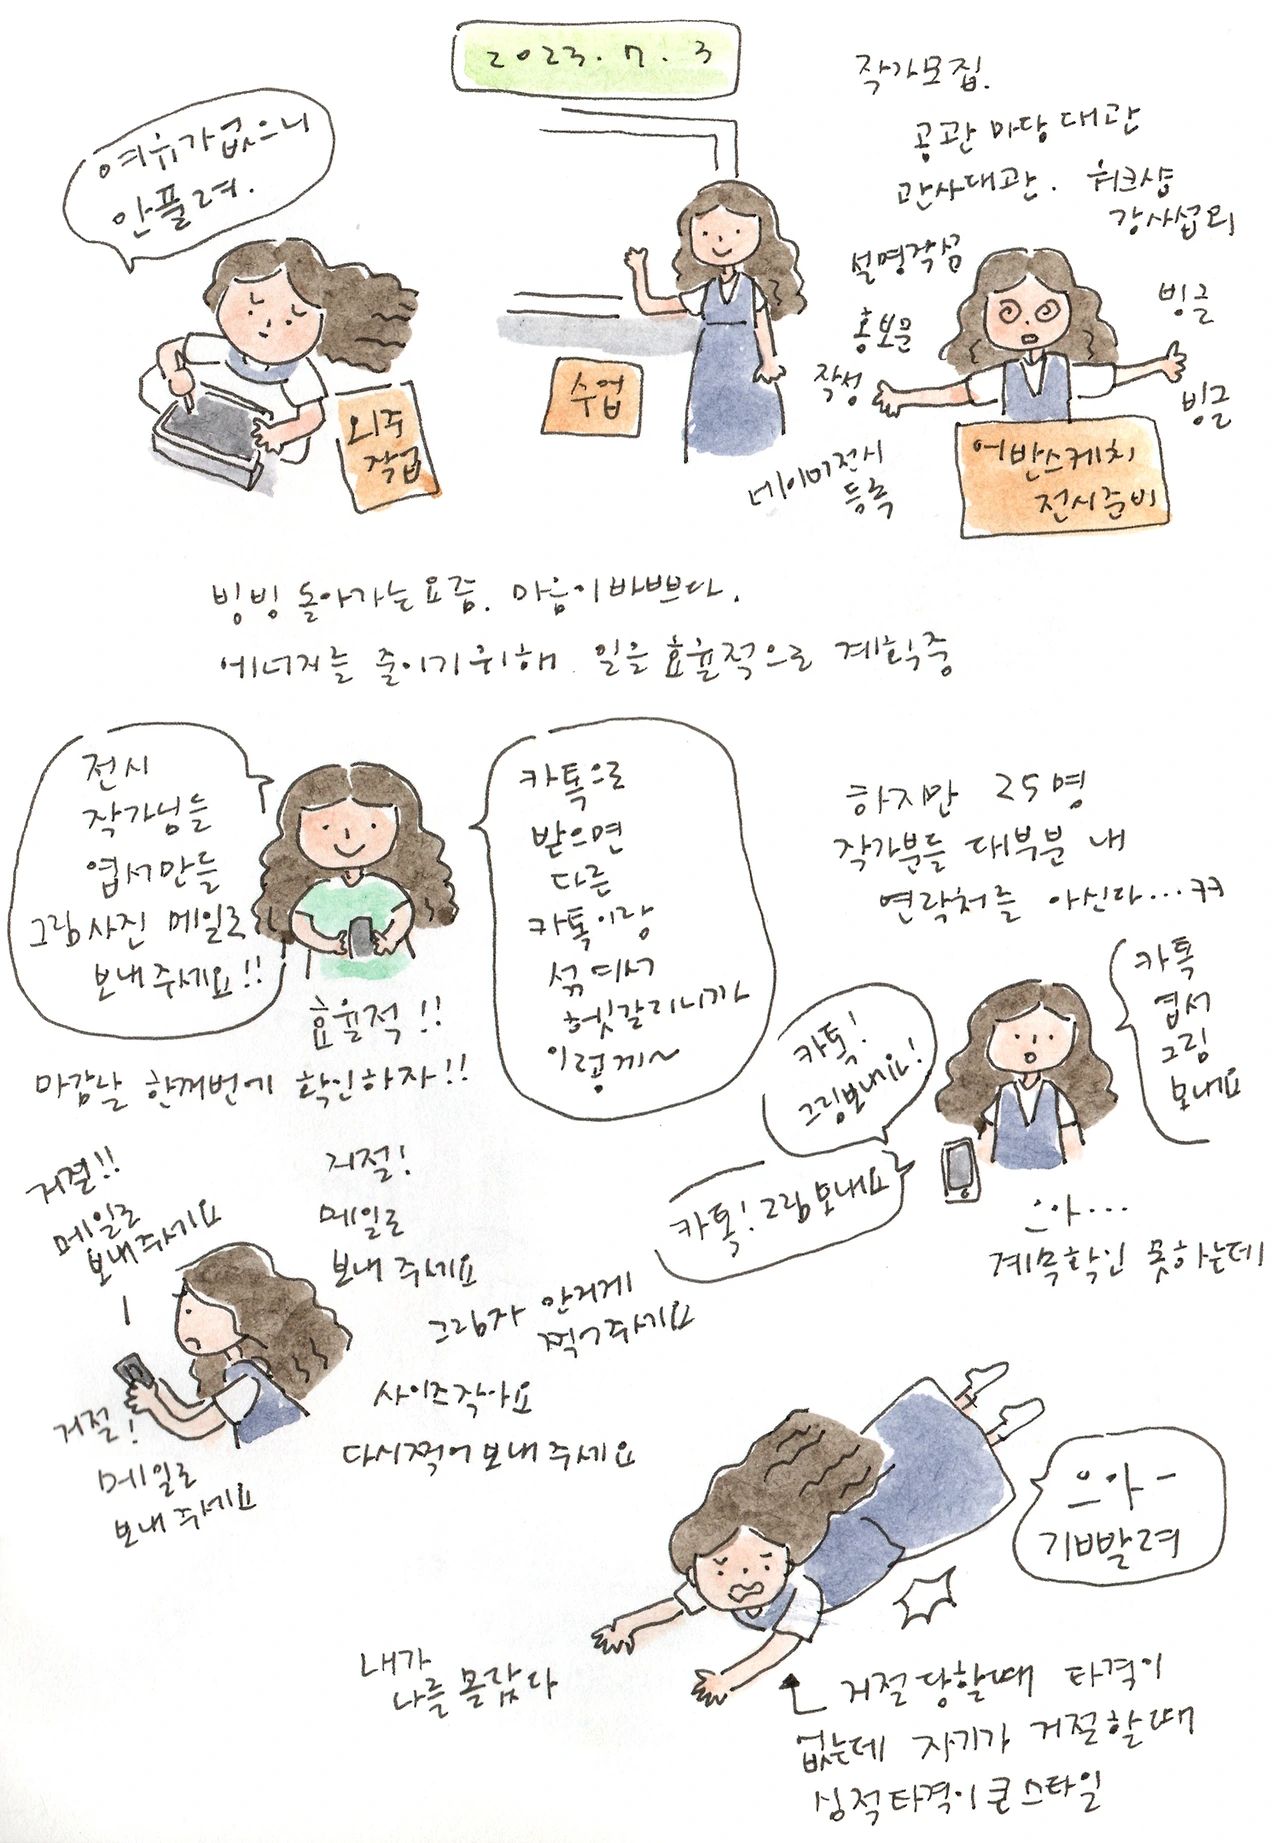 2023. 7. 3
여유가없으니
안풀려.
외주
작업
수업
작가모집.
공관 마당 대관
관사대관. 워크샵
강사섭외
설명작성
홍보문
작성
네이버전시
등록
빙글
빙글
어반스케치
전시준비
빙빙 돌아가는요즘. 마음이바쁘다.
에너지를 줄이기위해. 일을 효율적으로 계획중
전시
작가님들
엽서만들
그림사진 메일로
보내주세요!!
카톡으로
받으면
다른
카톡이랑
섞여서
헷갈리니까
이렇게~
효율적!!
마감날 한꺼번에 확인하자!!
하지만 25명
작가분들 대부분 내
연락처를 아신다...ㅋㅋ
카톡!
그림보내요!
카톡! 그림보내요
카톡
엽서
그림
보내요
으아...
계속확인 못하는데
거절!!
메일로
보내주세요
거절!
메일로
보내 주세요
거절!
메일로
보내 주세요
그림자 안지게
찍어주세요
사이즈작아요
다시찍어 보내 주세요
으아-
기빨려
내가
나를 몰랐다
거절 당할때 타격이
없는데 자기가 거절할때
심적타격이 큰스타일